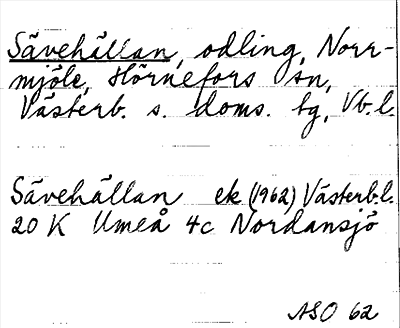 Sävehällan, odling, Norr-
mjöle, Hörnefors sn,
Västerb. s. doms. tg, Vb.l.
Sävehällan ek (1962) Västerb.l.
20 K Umeå 4c Nordansjö
ASO 62